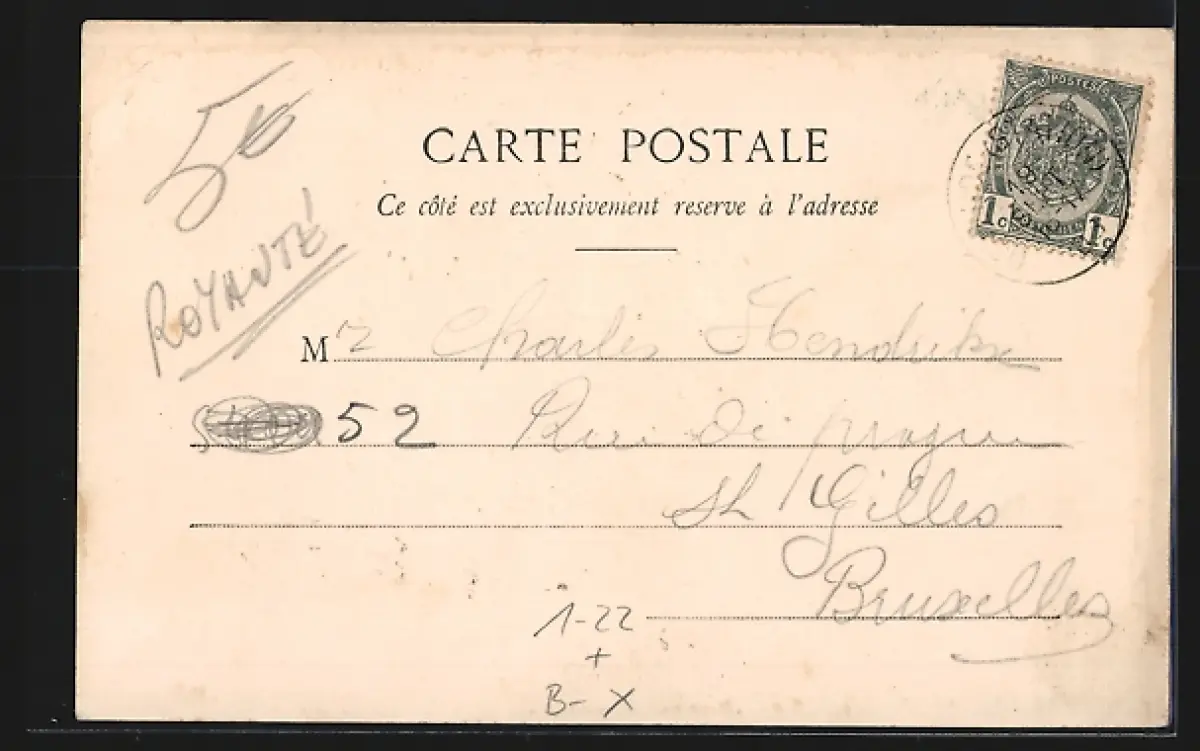 5e
ROYAUTÉ
POSTES
1c 1c
CARTE POSTALE
Ce côté est exclusivement reserve à l'adresse
Mr Charles Hendrikx
52 Rue de
St Gilles
Bruxelles
1-22
+
B-X